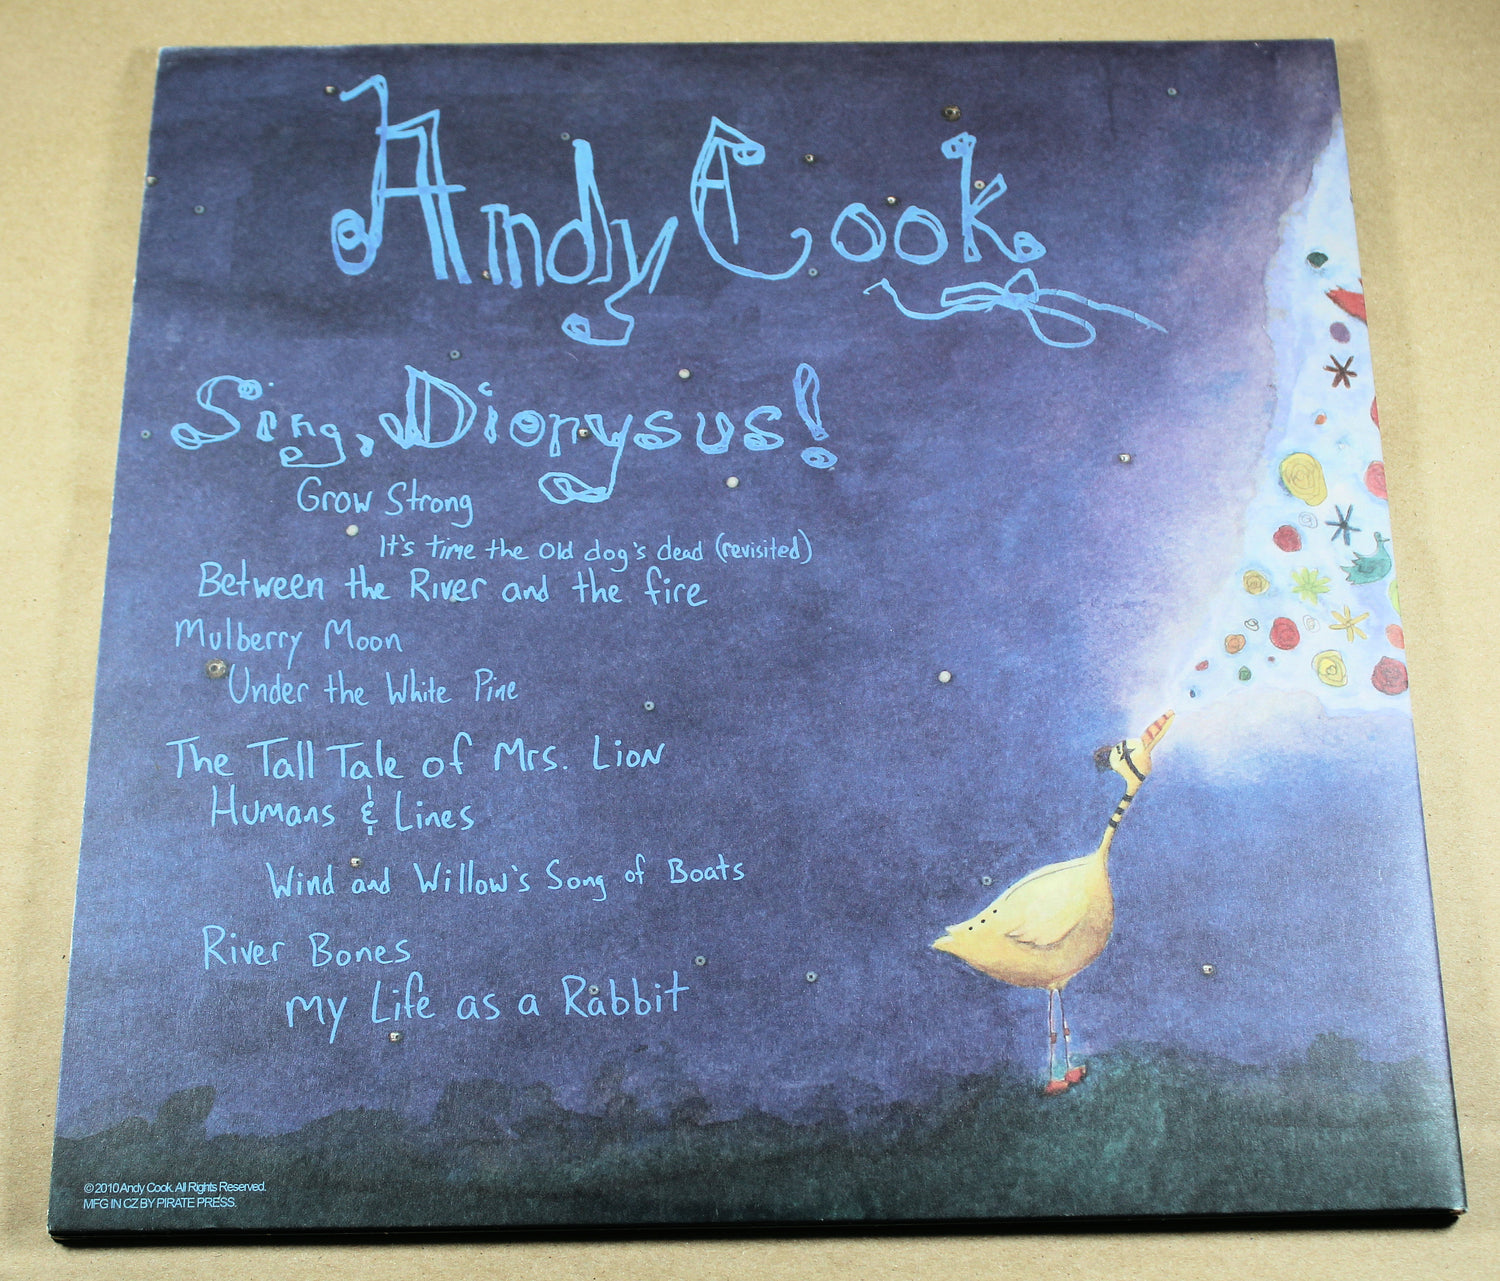 Andy Cook
Sing, Dionysus!
Grow Strong
It's time the old dog's dead (revisited)
Between the River and the fire
Mulberry Moon
Under the White Pine
The Tall Tale of Mrs. Lion
Humans & Lines
Wind and Willow's Song of Boats
River Bones
My Life as a Rabbit
© 2010 Andy Cook. All Rights Reserved.
MFG IN CZ BY PIRATE PRESS.